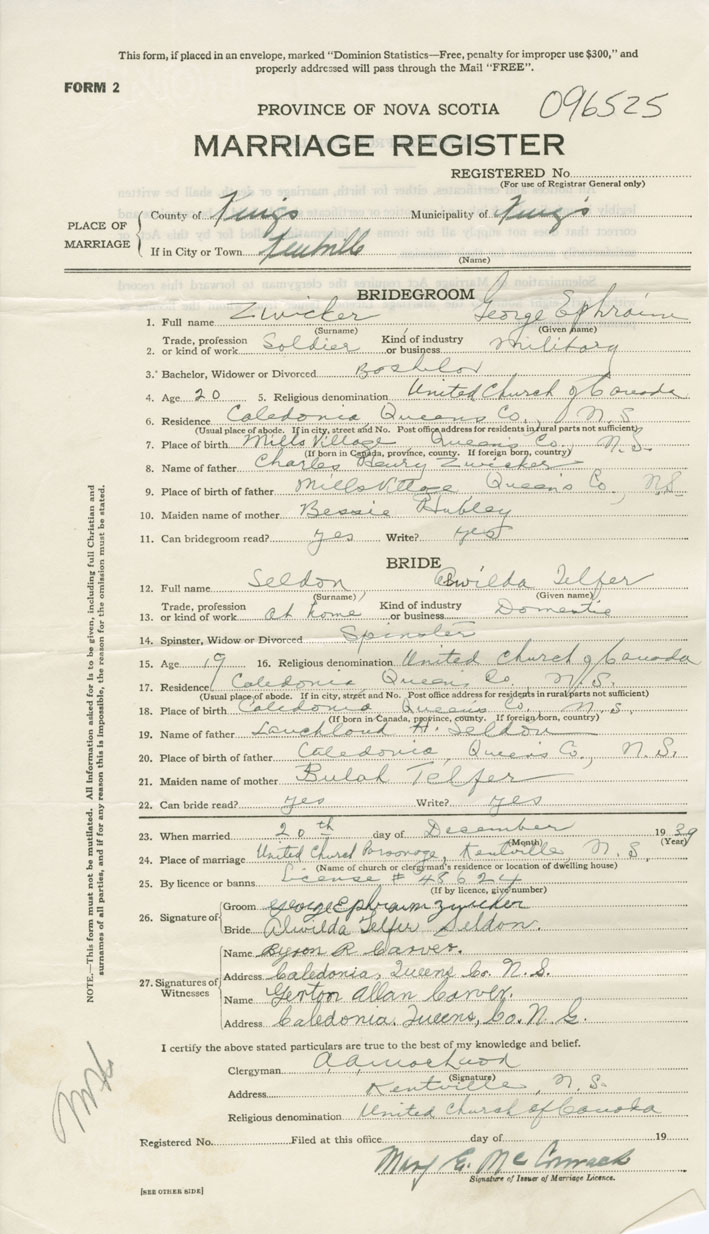 This form, if placed in an envelope, marked "Dominion Statistics—Free, penalty for improper use $300," and
properly addressed will pass through the Mail "FREE".
FORM 2
PROVINCE OF NOVA SCOTIA
096525
MARRIAGE REGISTER
REGISTERED No.
(For use of Registrar General only)
PLACE OF MARRIAGE
County of Kings Municipality of King's
If in City or Town Kentville
(Name)
BRIDEGROOM
1. Full name Zwicker George Ephraim
(Surname) (Given name)
2. Trade, profession or kind of work Soldier Kind of industry or business Military
3. Bachelor, Widower or Divorced Bachelor
4. Age 20 5. Religious denomination United Church of Canada
6. Residence Caledonia, Queens Co., N.S.
(Usual place of abode. If in city, street and No. Post office address for residents in rural parts not sufficient)
7. Place of birth Mills Village Queens Co., N.S.
(If born in Canada, province, county. If foreign born, country)
8. Name of father Charles Henry Zwicker
9. Place of birth of father Mills Village Queens Co., N.S.
10. Maiden name of mother Bessie Hubley
11. Can bridegroom read? yes Write? yes
BRIDE
12. Full name Seldon Alwilda Telfer
(Surname) (Given name)
13. Trade, profession or kind of work at home Kind of industry or business Domestic
14. Spinster, Widow or Divorced Spinster
15. Age 19 16. Religious denomination United Church of Canada
17. Residence Caledonia Queens Co., N.S.
(Usual place of abode. If in city, street and No. Post office address for residents in rural parts not sufficient)
18. Place of birth Caledonia Queens Co., N.S.
(If born in Canada, province, county. If foreign born, country)
19. Name of father Lauchland H. Seldon
20. Place of birth of father Caledonia, Queens Co., N.S.
21. Maiden name of mother Bulah Telfer
22. Can bride read? yes Write? yes
23. When married 20th day of December 1939
(Month) (Year)
24. Place of marriage United Church Parsonage, Kentville, N.S.
(Name of church or clergyman's residence or location of dwelling house)
25. By licence or banns License # 48624
(If by licence, give number)
26. Signature of
Groom George Ephraim Zwicker
Bride Alwilda Telfer Seldon.
27. Signatures of Witnesses
Name Byron R Carver.
Address Caledonia, Queens Co. N.S.
Name Allan Carver.
Address Caledonia. Queens, Co. N.S.
I certify the above stated particulars are true to the best of my knowledge and belief.
Clergyman
(Signature)
Address Kentville, N.S.
Religious denomination United Church of Canada
Registered No. Filed at this office day of 19
Mary E. McCormack
Signature of Issuer of Marriage Licence.
[SEE OTHER SIDE]
NOTE.—This form must not be mutilated. All information asked for is to be given, including full Christian and
surnames of all parties, and if for any reason this is impossible, the reason for the omission must be stated.